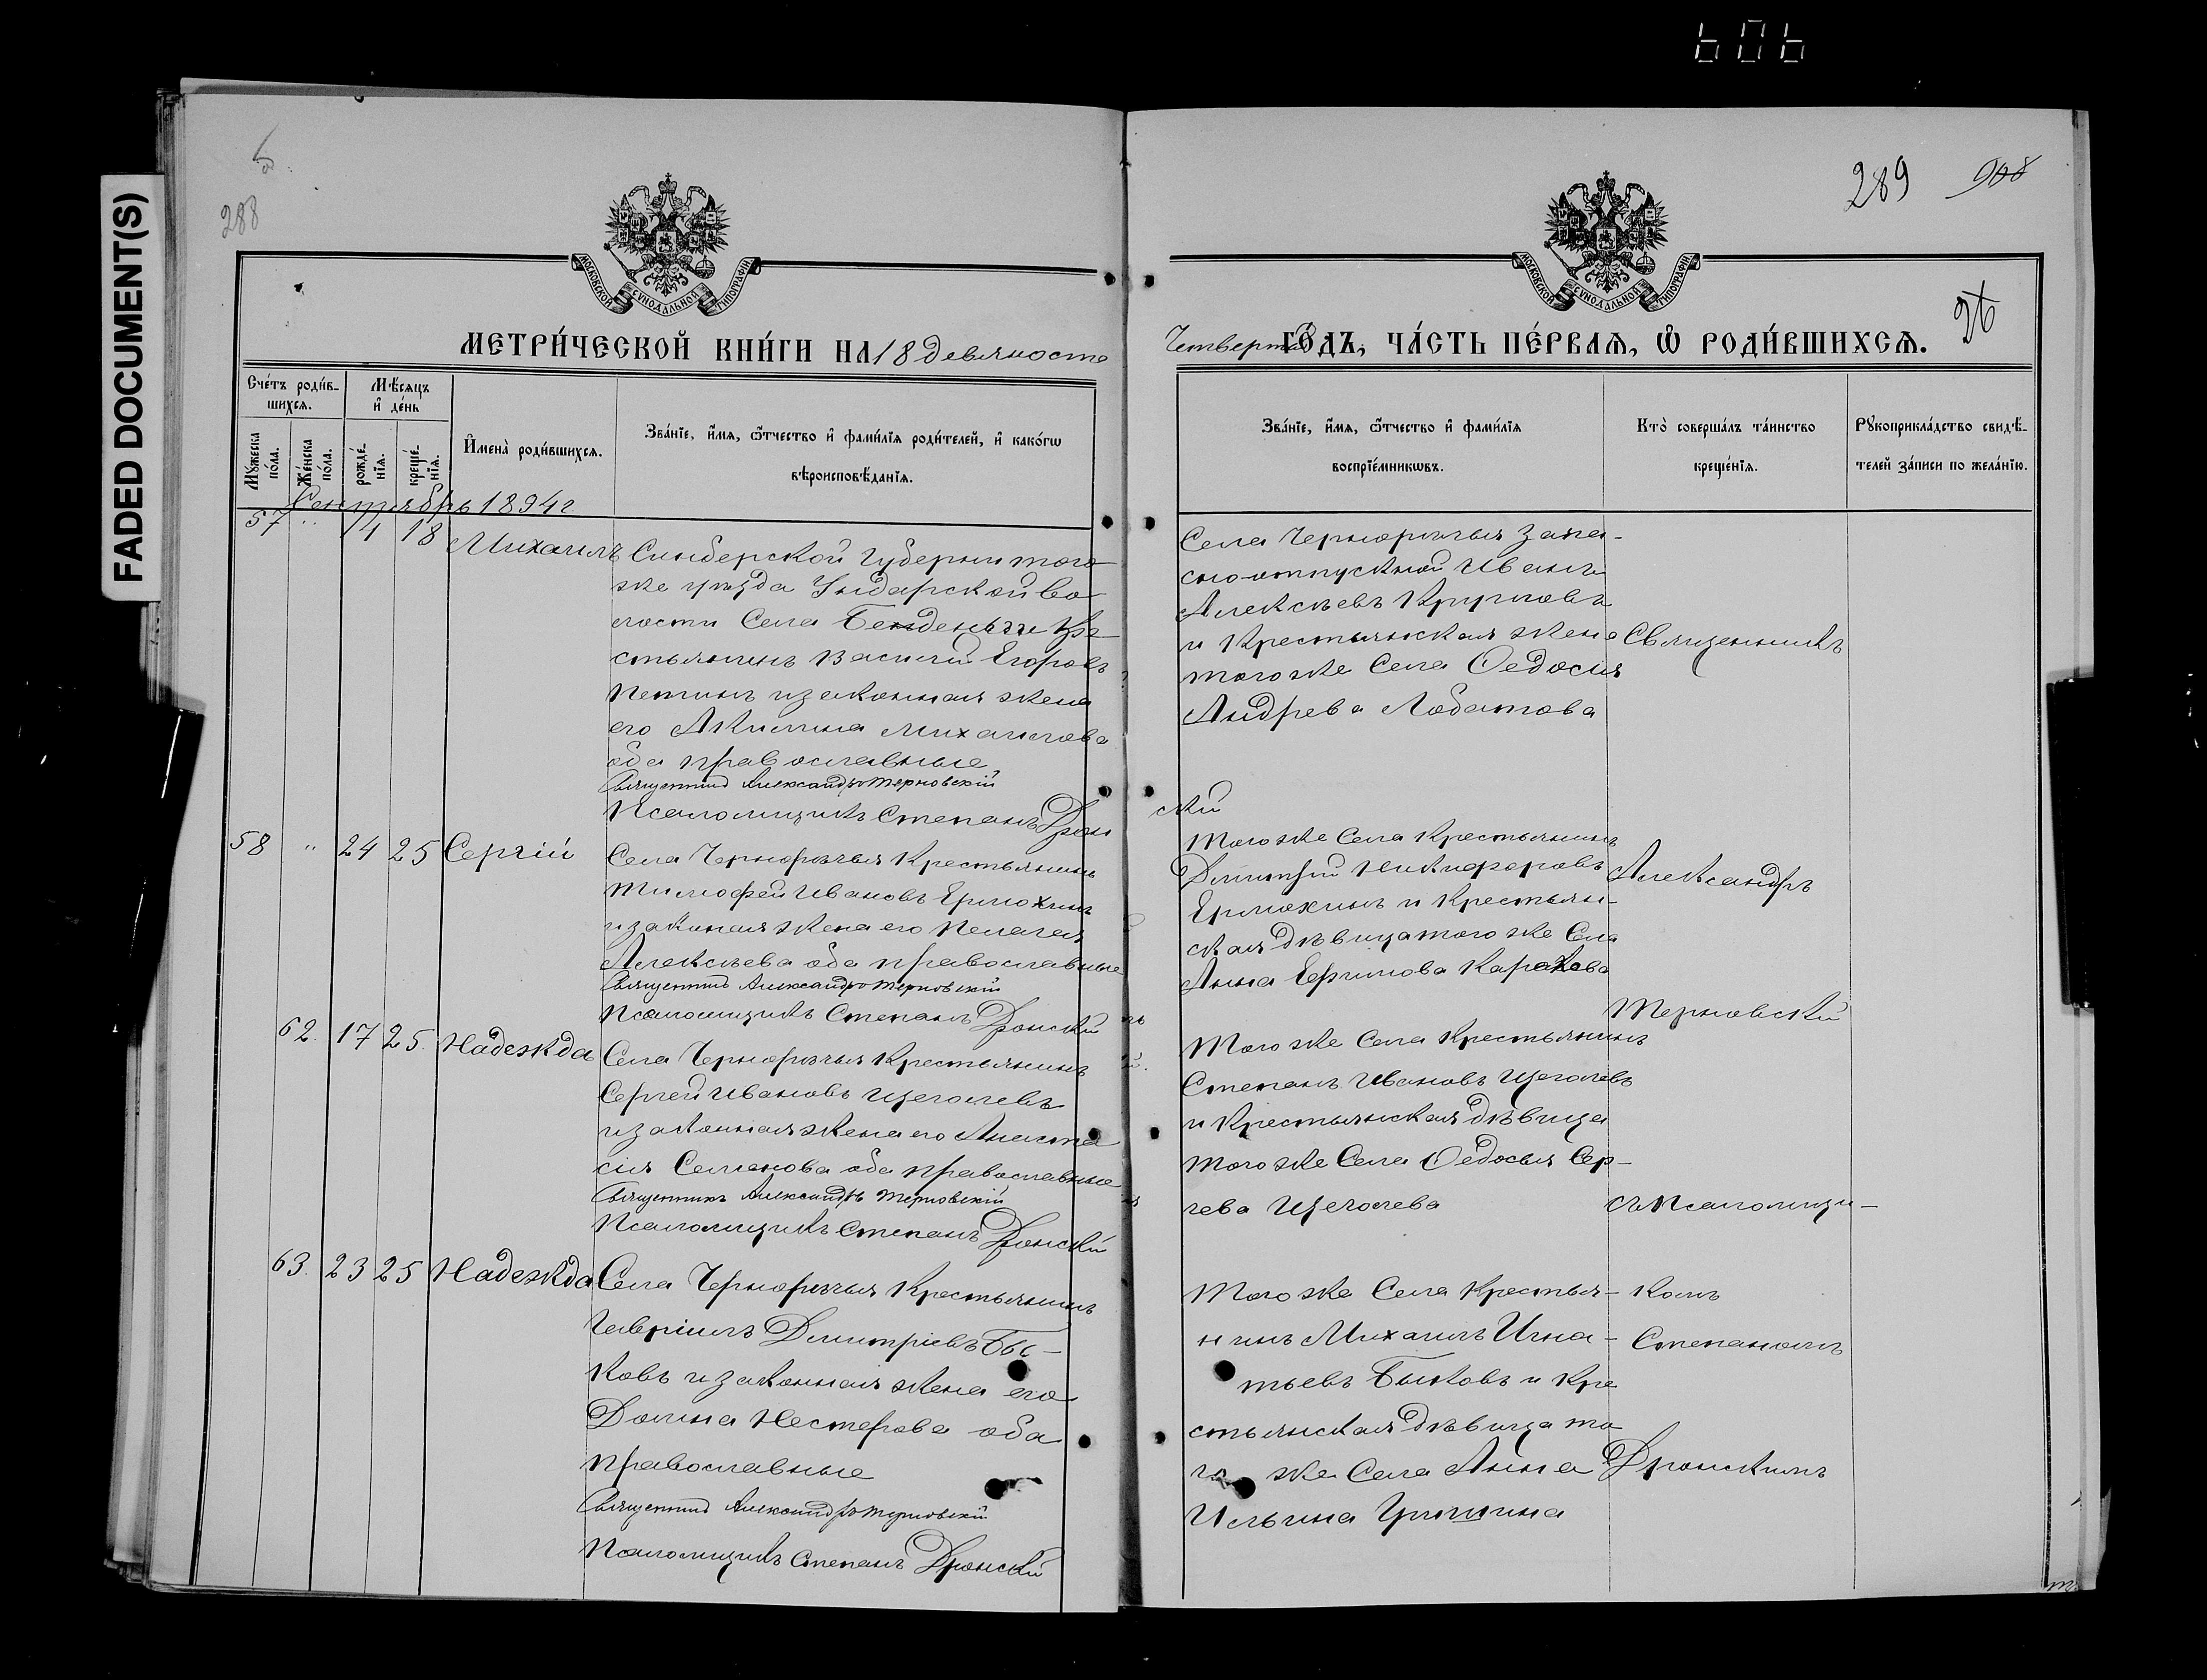 606
FADED DOCUMENT(S)
288
МОСКОВСКОЙ СУНОДАЛЬНОЙ ТИПОГРАФИИ
МЕТРИ́ЧЕСКОЙ КНИ́ГИ НА 18 девяносто
Сче́тъ роди́в-
шихся.
Мѣ́сяцъ
и҆ де́нь
Мꙋ́жеска
по́ла.
Же́нска
по́ла.
рожде́-
нїѧ.
креще́-
нїѧ.
И҆мена̀ роди́вшихсѧ.
Зва́нїе, и҆́мѧ, ѻ҆́тчество и҆ фами́лїѧ роди́телей, и҆ како́гѡ
вѣроисповѣ́данїѧ.
Сентябрь 1894 г
57 " 14 18 Михаилъ
Симберской губернии того
же уѣзда
лости Села Кре
стьянинъ Василий Егоровъ
и законная жена
его Акилина Михаилова
оба православные
Священникъ Александръ Терновскій
Псаломщикъ Степанъ Дрон
58 " 24 25 Сергій
Села Чернорѣчья Крестьянинъ
Тимофей Ивановъ Ермохинъ
и законая жена его Пелагея
Алексѣева оба православные
Священникъ Александръ Терновскій
Псаломщикъ Степанъ Дронский
62. 17 25. Надежда
Села Чернорѣчья Крестьянинъ
Сергей Ивановъ Щеголевъ
и законная жена его Анаста
сія Семенова оба православные
Священникъ Александръ Терновскій
Псаломщикъ Степанъ Дронский
63. 23 25 Надежда
Села Чернорѣчья Крестьянинъ
Гавріилъ Дмитріевъ Бы-
ковъ и законная жена его
Домна Нестерова оба
православные
Священникъ Александръ Терновскій
Псаломщикъ Степанъ Дронский
289 908
26
МОСКОВСКОЙ СУНОДАЛЬНОЙ ТИПОГРАФИИ
Четвертый ГО́ДЪ, ЧА́СТЬ ПЕ́РВАѦ, Ѡ҆ РОДИ́ВШИХСѦ.
Зва́нїе, и҆́мѧ, ѻ҆́тчество и҆ фами́лїѧ
воспрїе́мникѡвъ.
Кто̀ соверша́лъ та́инство
креще́нїѧ.
Рꙋкоприкла́дство свидѣ́-
телей за́писи по жела́нїю.
Села Чернорѣчья запа-
сно-отпускной Иванъ
Алексѣевъ Кругловъ
и Крестьянская жена
того же Села Ѳедосия
Андреева Лобатова
ский
Того же Села Крестьянинъ
Дмитрий Никифоровъ
Ермохинъ и Крестьян-
ская дѣвица того же Села
Анна Ефимова
Того же Села Крестьянинъ
Степанъ Ивановъ Щеголевъ
и Крестьянская дѣвица
того же Села Ѳедосья Сер-
гева Щеголева
Того же Села Крестья-
нинъ Михаилъ Игна-
тьевъ Быковъ и Кре
стьянская дѣвица то
го же Села Анна
Ильина
Священникъ
Александръ
Терновский
съ Псаломщи-
комъ
Степаномъ
Дронскимъ